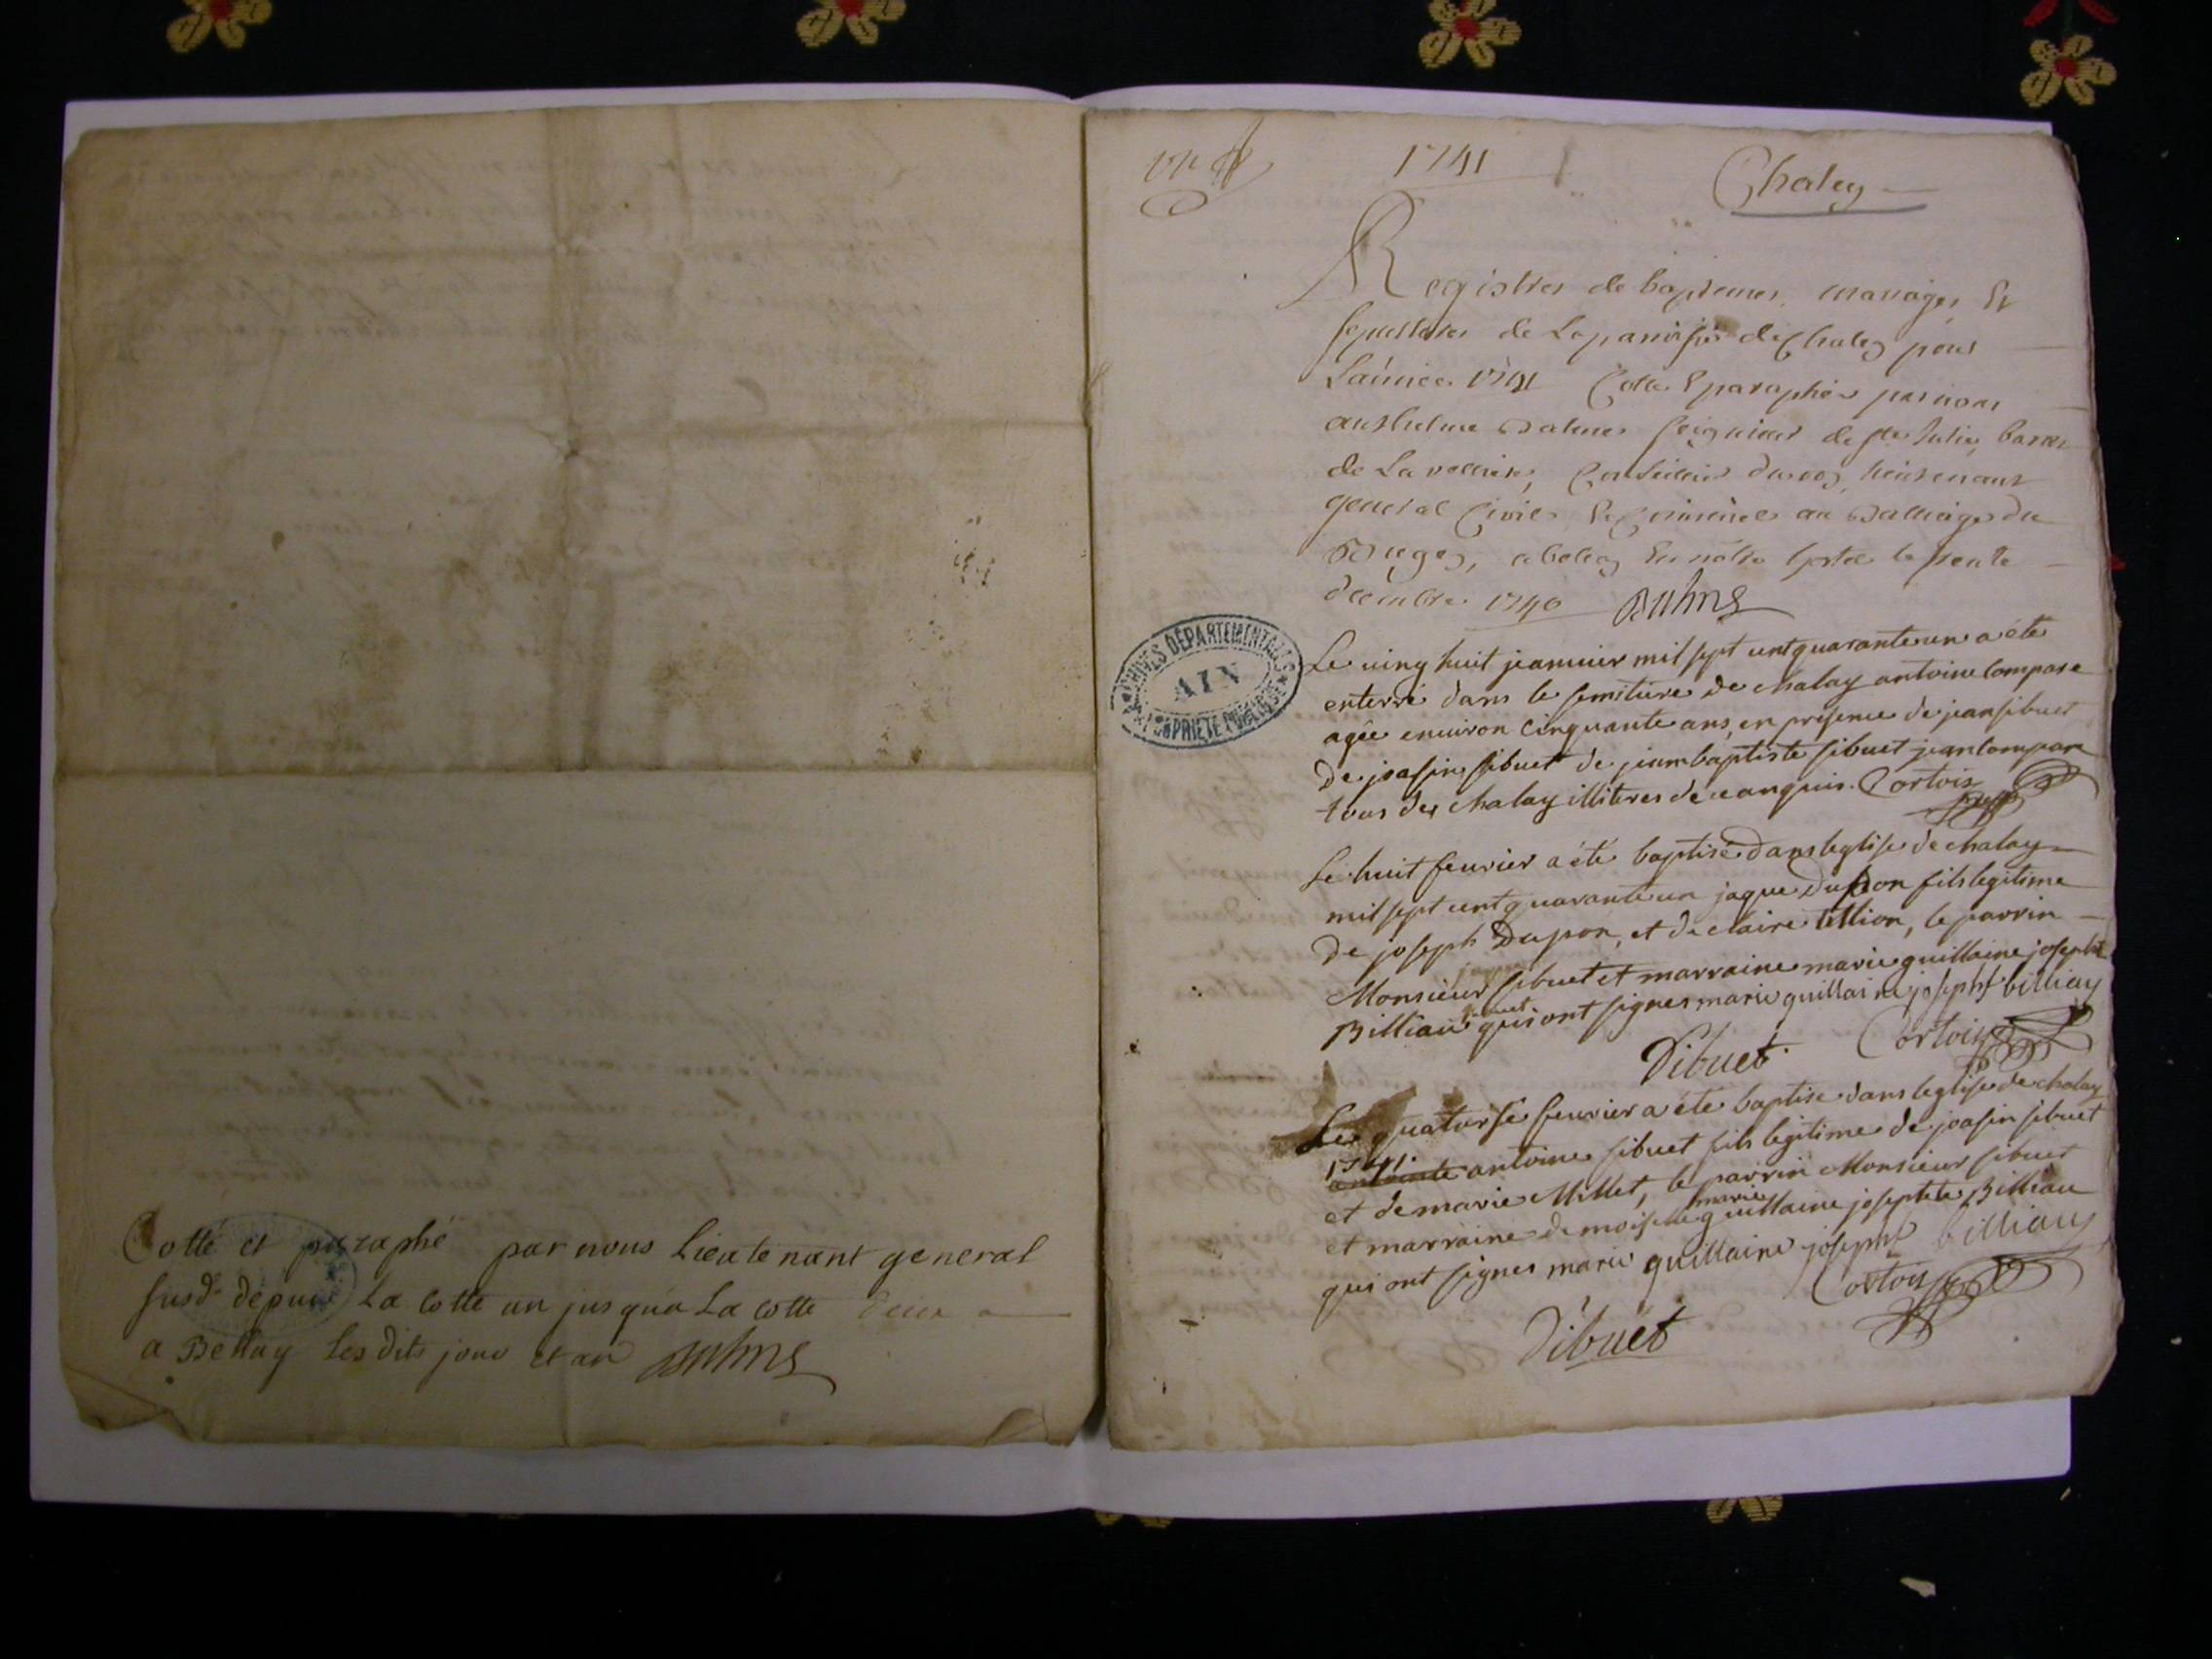 Cotté et paraphé par nous Lieutenant general
susd. depuis La cotte un jusqu'a La cotte deux
a Bellay Les dits jour et an Balme
1741
Chaley
Registres de baptemes, mariages, Et
sepultures de La parroisse de Chaley pour
L'année 1741 Cotté & paraphé par nous
anthelme Balme seigneur de ste Julie, baron
de La Conseiller du roy, Lieutenant
general Civil & Criminel au Balliage du
Bugey, a Belley En nôtre hotel le trente
decembre 1740 Balme
ARCHIVES DÉPARTEMENTALES
AIN
PROPRIÉTÉ PUBLIQUE
Le ving huit jeanuier mil sept cent quarante un a été
enterré dans le semitiere de chalay antoine Compare
agée enuiron cinquante ans, en presence de jean sibuet
De joasin sibuet de jeambaptiste sibuet jean Compare
tous de chalay illiteres de ce anquis. Cortois
Le huit feurier a été baptisé dans leglise de chalay
mil sept cent quarante un jaque Dupon fils legitime
De joseph Dupon, et de claire tillion, le parrin
Monsieur sibuet et marraine marie guillaine josephte
Billiau qui ont signes marie guillaine josepht billiay
Sibuet Cortois
Le quatorse feurier a été baptise dans leglise de chalay
1741.
antoine sibuet fils legitime de joasin sibuet
et de marie Millet, le parrin Monsieur sibuet
et marraine demoiselle marie guillaine josephte Billiau
qui ont signes marie guillaine josepht billiay
Cortois
Sibuet